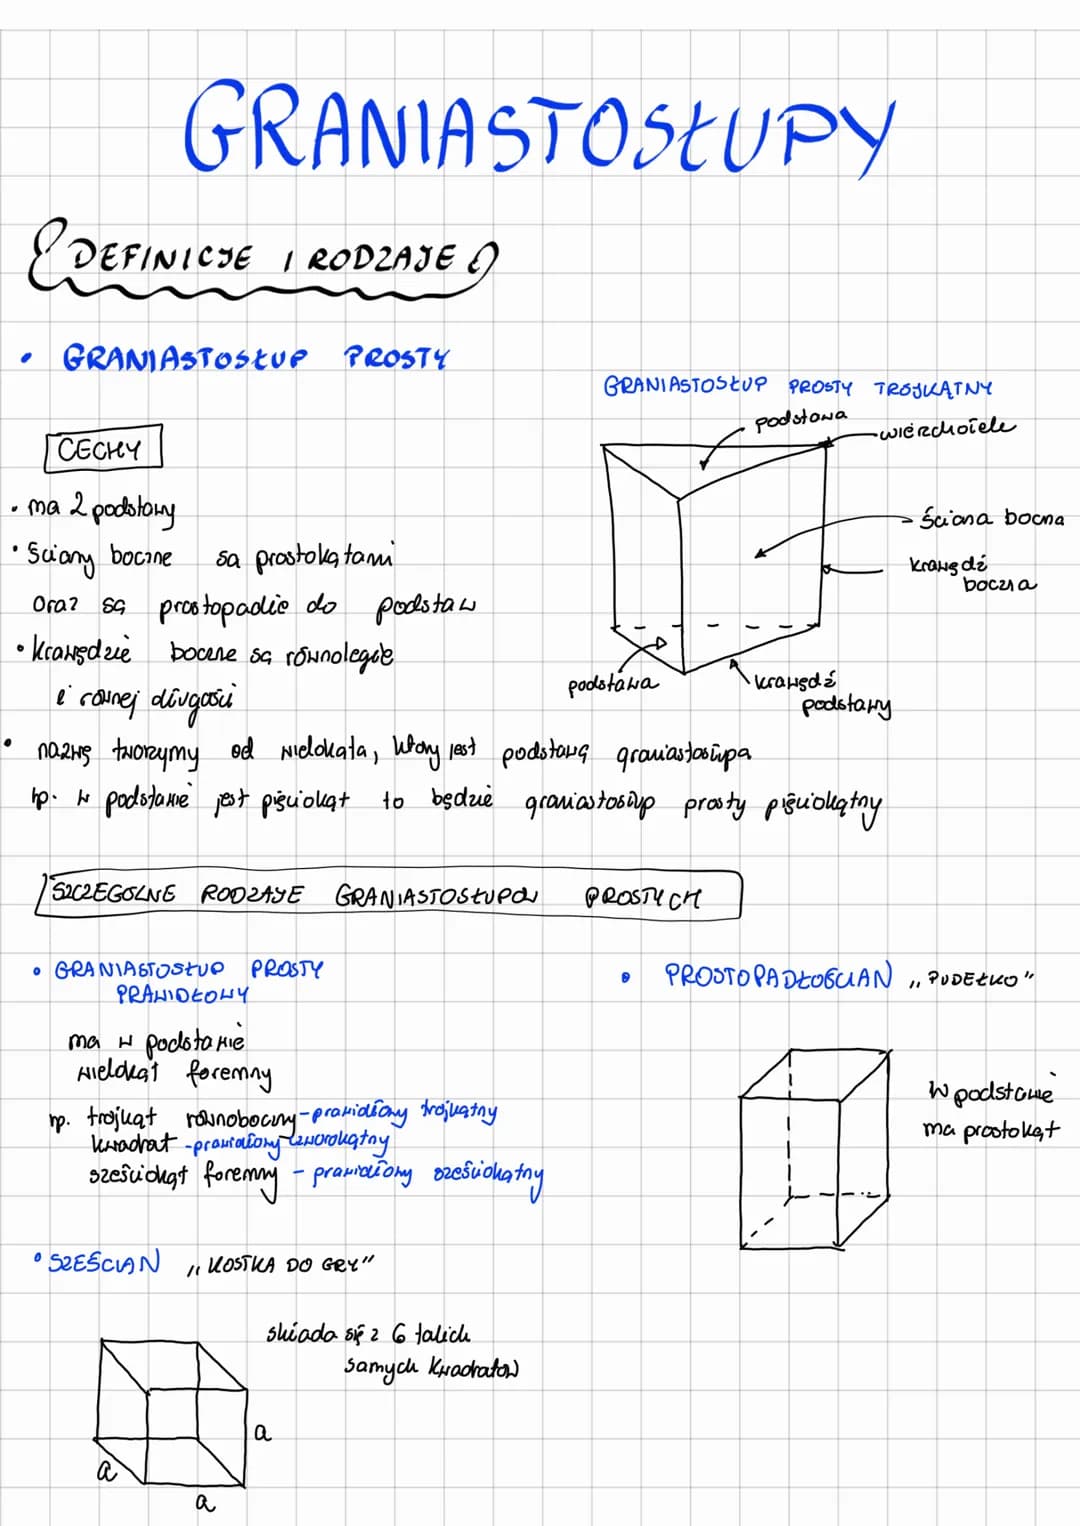 GRANIASTOSŁUPY
DEFINICJE I RODZAJE
• GRANIASTOSŁUP PROSTY
GRANIASTOSŁUP PROSTY TRÓJKĄTNY
podstawa
wierzchołek
ściana boczna
krawędź
boczna
podstawa
krawędź
podstawy
CECHY
• ma 2 podstawy
• Ściany boczne są prostokątami
oraz są prostopadłe do podstaw
• krawędzie boczne są równoległe
i równej długości
• nazwę tworzymy od wielokąta, który jest podstawą graniastosłupa
np. w podstawie jest pięciokąt to będzie graniastosłup prosty pięciokątny
SZCZEGÓLNE RODZAJE GRANIASTOSŁUPÓW PROSTYCH
• GRANIASTOSŁUP PROSTY
PRAWIDŁOWY
ma w podstawie
wielokąt foremny
np. trójkąt równoboczny - prawidłowy trójkątny
kwadrat - prawidłowy czworokątny
sześciokąt foremny - prawidłowy sześciokątny
• PROSTOPADŁOŚCIAN „PUDEŁKO”
W podstawie
ma prostokąt
• SZEŚCIAN „KOSTKA DO GRY”
składa się z 6 takich
samych kwadratów
a
a
a